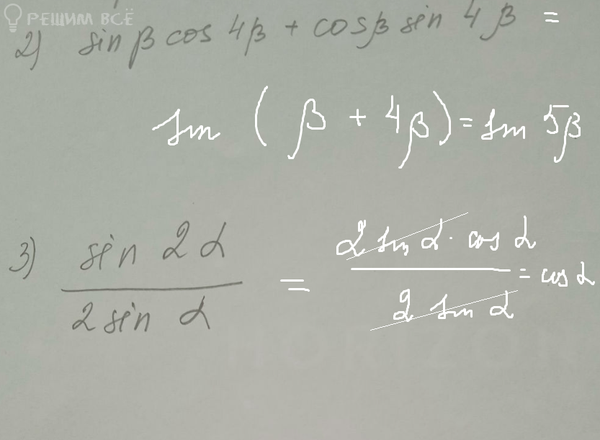 РЕШИМ ВСЁ
2) sin β cos 4β + cos β sin 4β =
sin (β + 4β) = sin 5β
3) sin 2α / 2 sin α = 2 sin α · cos α / 2 sin α = cos α